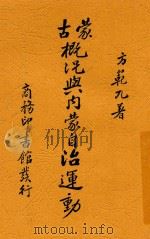 方範九著
蒙古概況與內蒙自治運動
商務印書館發行
PDG
www.toopoo.com